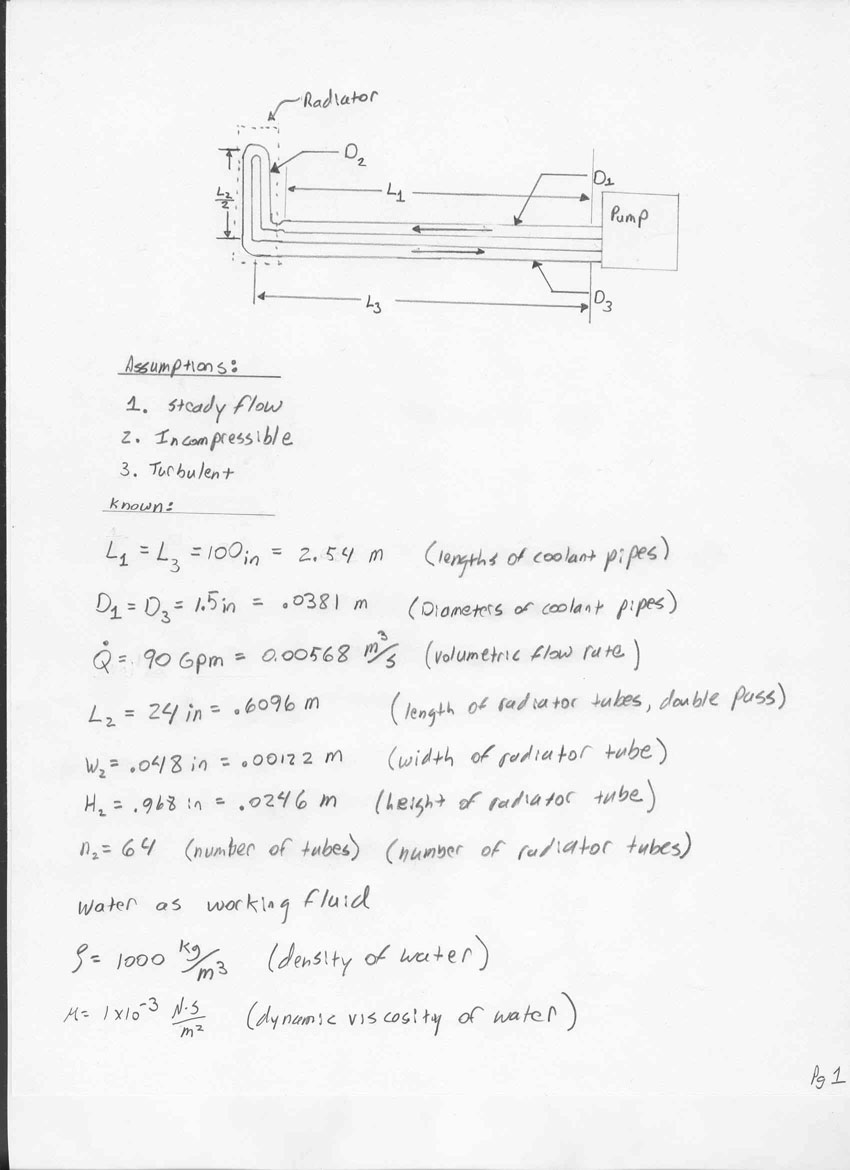 Radiator
D2
L2/2
L1
D1
Pump
L3
D3
Assumptions:
1. steady flow
2. Incompressible
3. Turbulent
known:
L1 = L3 = 100in = 2.54 m (lengths of coolant pipes)
D1 = D3 = 1.5in = .0381 m (Diameters of coolant pipes)
Q̇ = 90 Gpm = 0.00568 m³/s (volumetric flow rate)
L2 = 24 in = .6096 m (length of radiator tubes, double pass)
W2 = .048 in = .00122 m (width of radiator tube)
H2 = .968 in = .0246 m (height of radiator tube)
n2 = 64 (number of tubes) (number of radiator tubes)
Water as working fluid
ρ = 1000 kg/m³ (density of water)
μ = 1x10⁻³ N·S/m² (dynamic viscosity of water)
Pg 1